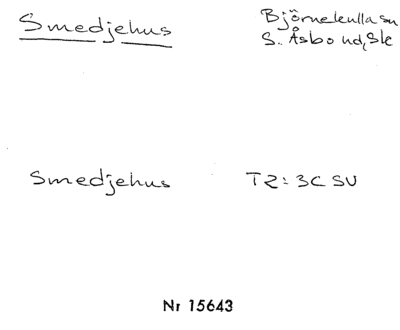 Smedjehus
Björnekulla sn
S. Åsbo hd, Sk
Smedjehus
T2: 3C SV
Nr 15643